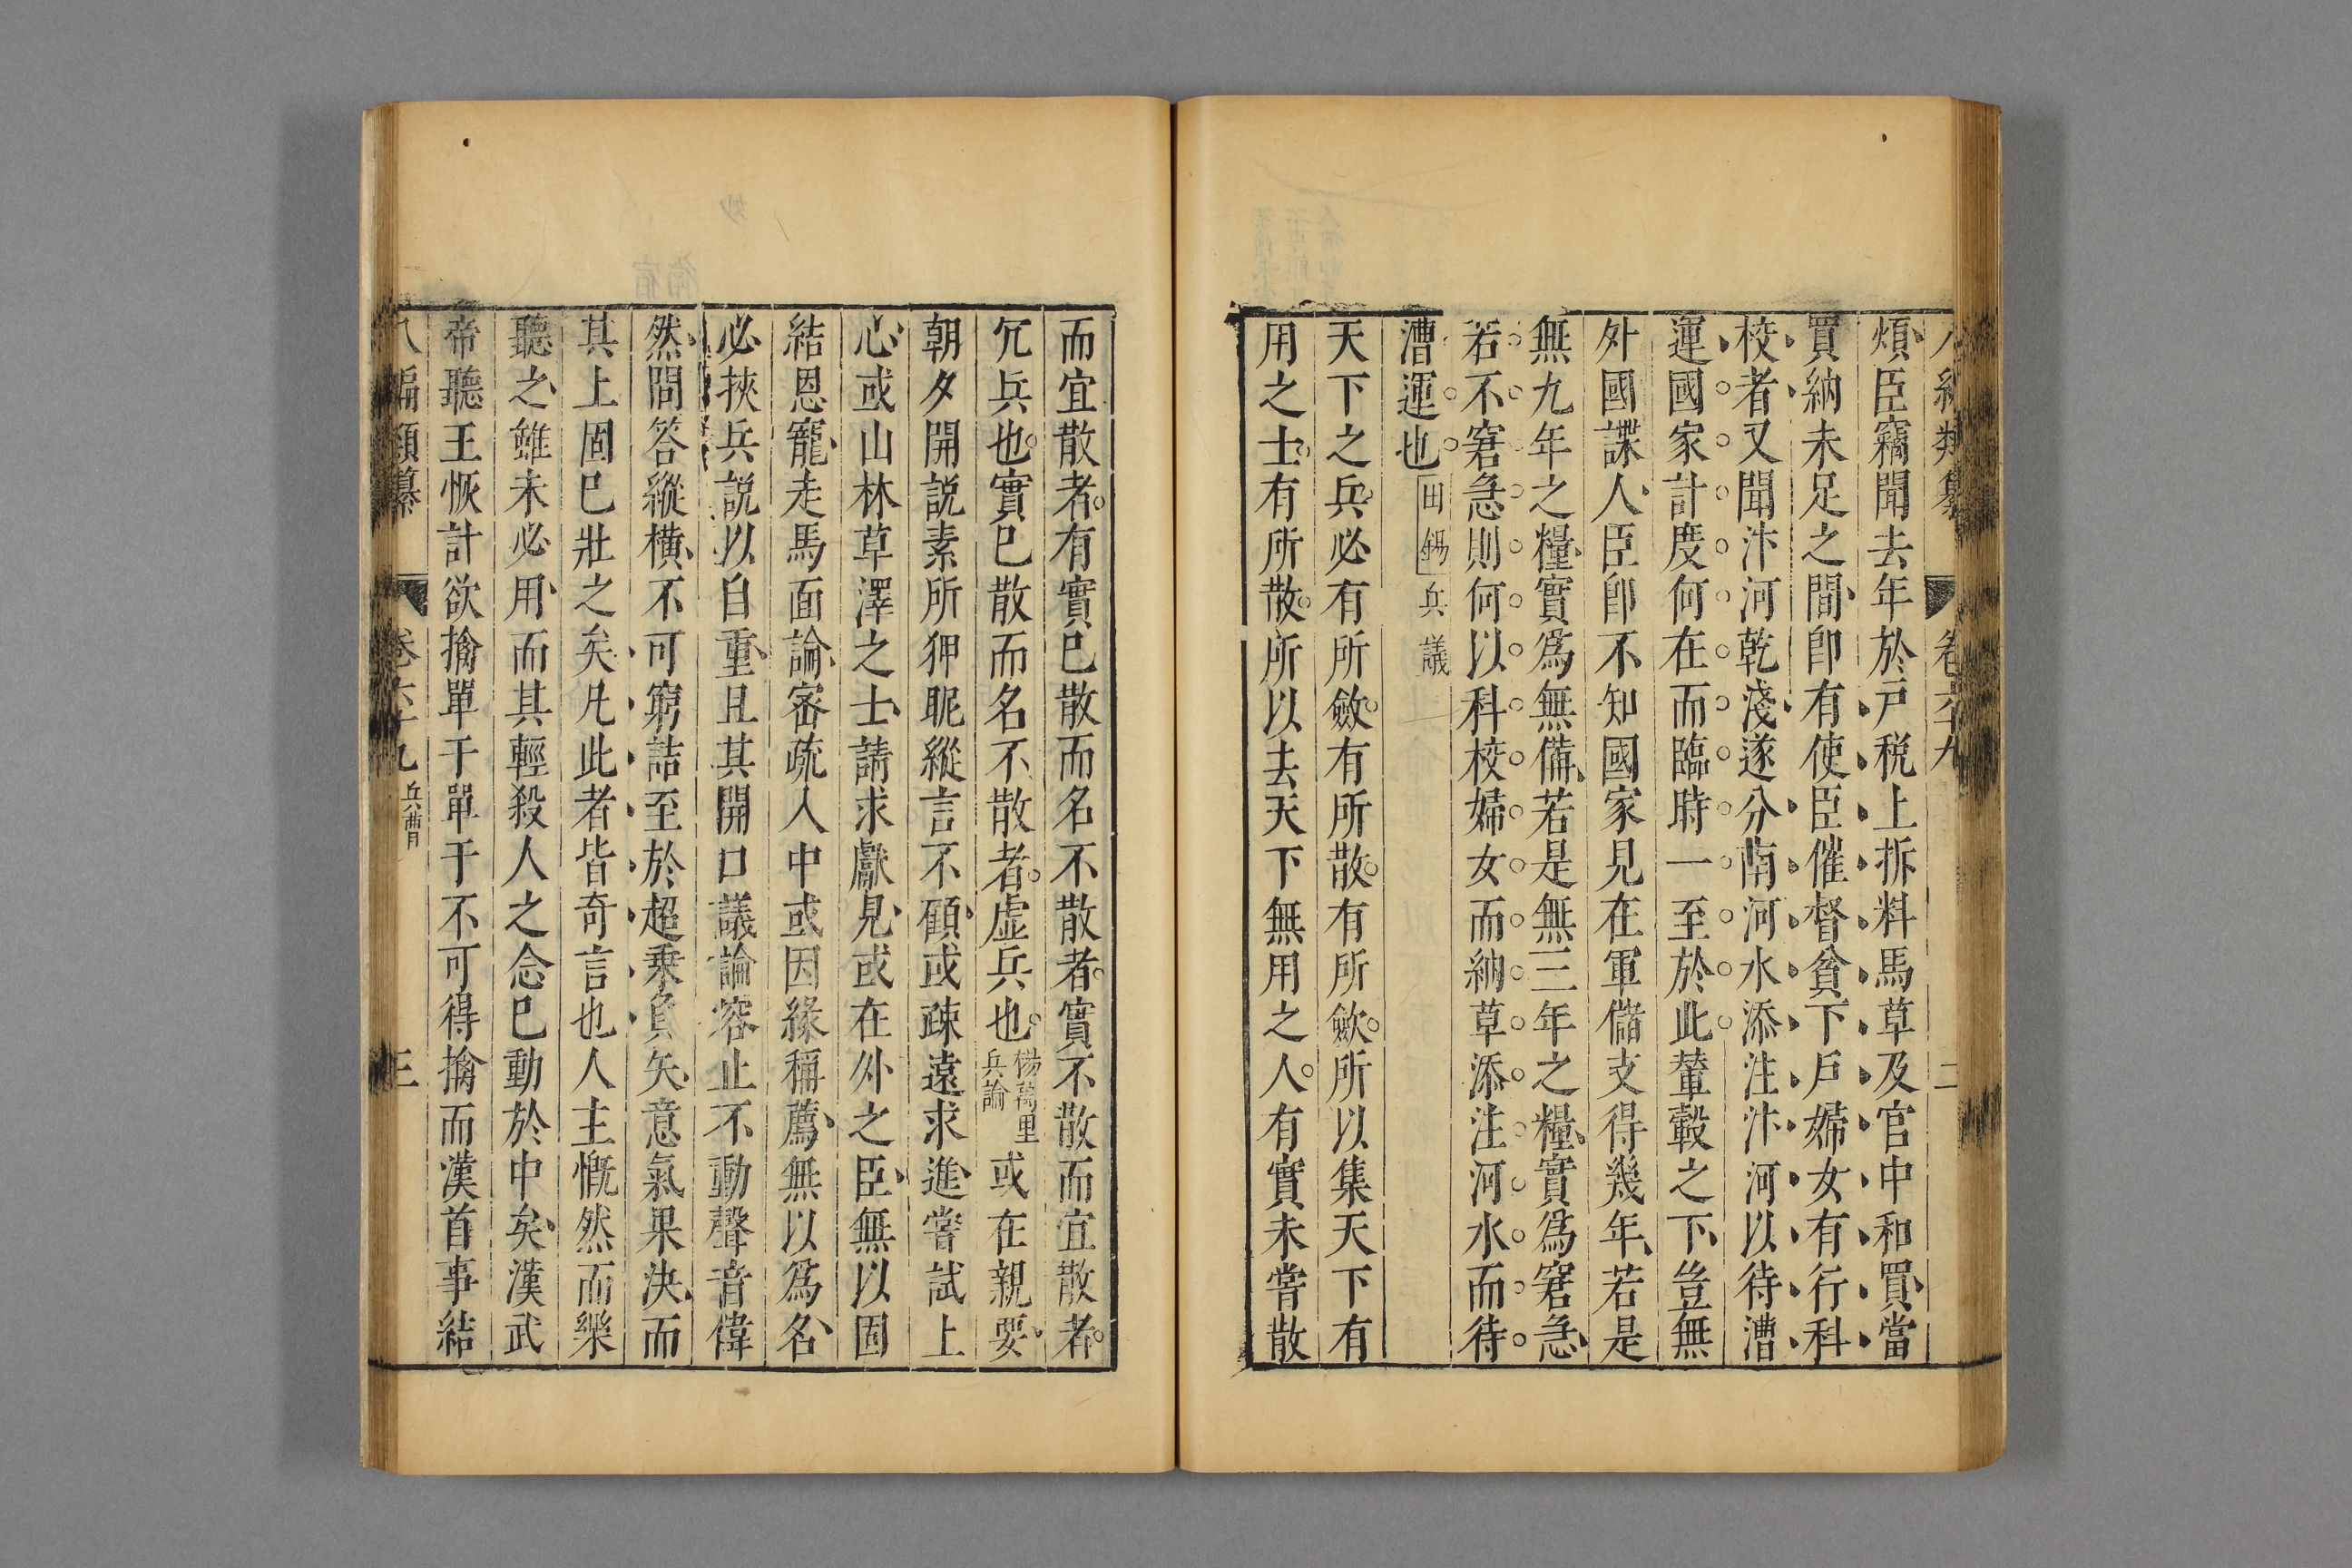 八編類纂 卷六十九 二
煩臣竊聞去年於戸税上拆料馬草及官中和買當
買納未足之間即有使臣催督貧下戸婦女有行科
校者又聞汴河乾淺遂分南河水添注汴河以待漕
運國家計度何在而臨時一至於此輦轂之下豈無
外國諜人臣即不知國家見在軍儲支得幾年若是
無九年之糧實爲無備若是無三年之糧實爲窘急
若不窘急則何以科校婦女而納草添注河水而待
漕運也田錫兵議
天下之兵必有所斂有所散有所斂所以集天下有
用之士有所散所以去天下無用之人有實未甞散
而宜散者有實已散而名不散者實不散而宜散者
冗兵也實已散而名不散者虛兵也楊萬里兵論或在親要
朝夕開説素所狎昵縱言不顧或疎遠求進甞試上
心或山林草澤之士請求獻見或在外之臣無以固
結恩寵走馬面論審疏入中或因緣稱薦無以爲名
必挾兵説以自重且其開口議論容止不動聲音偉
然問答縱橫不可窮詰至於超乗負矢意氣果決而
其上固已壯之矣凡此者皆奇言也人主慨然而樂
聽之雖未必用而其輕殺人之念已動於中矣漢武
帝聽王恢計欲擒單于單于不可得擒而漢首事結
八編類纂 卷六十九 兵曹 三